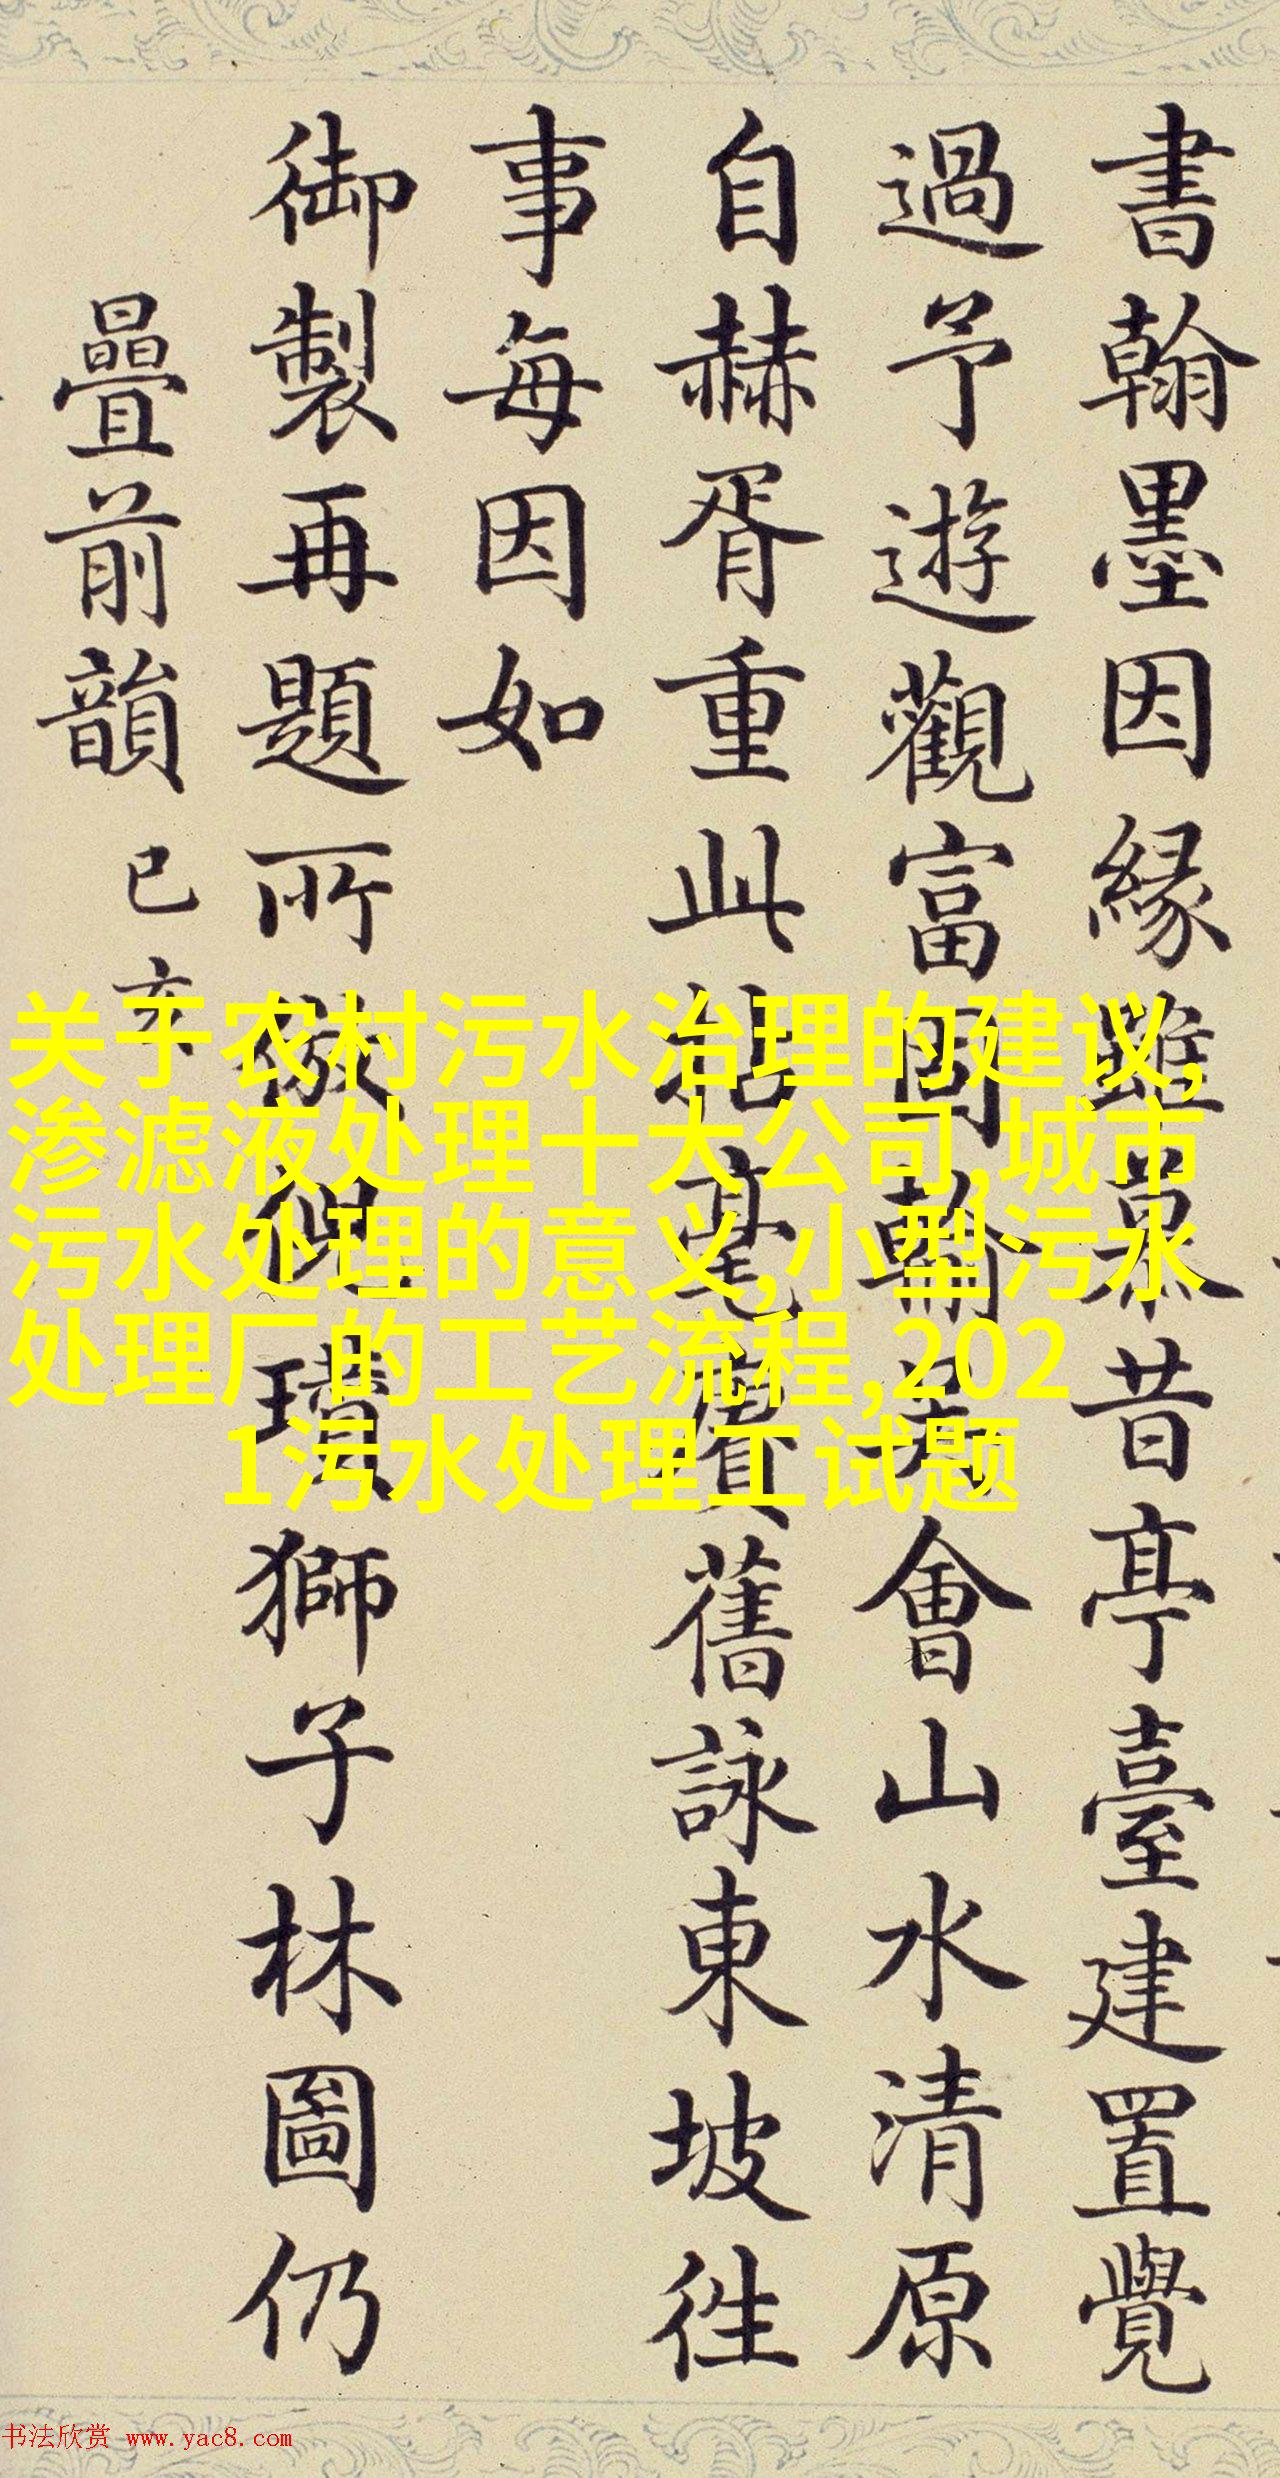 書翰墨因緣雖慕昔亭臺建置覺
過予遊觀富周翰
會山水清原
自赫胥重此拈毫賡舊詠東坡徃
事每因如
御製再題所倣倪瓚獅子林圖仍
疊前韻 已亥
关于农村污水治理的建议,
渗滤液处理十大公司,城市
污水处理的意义,小型污水
处理厂的工艺流程,202
1污水处理工试题
书法欣赏 www.yac8.com